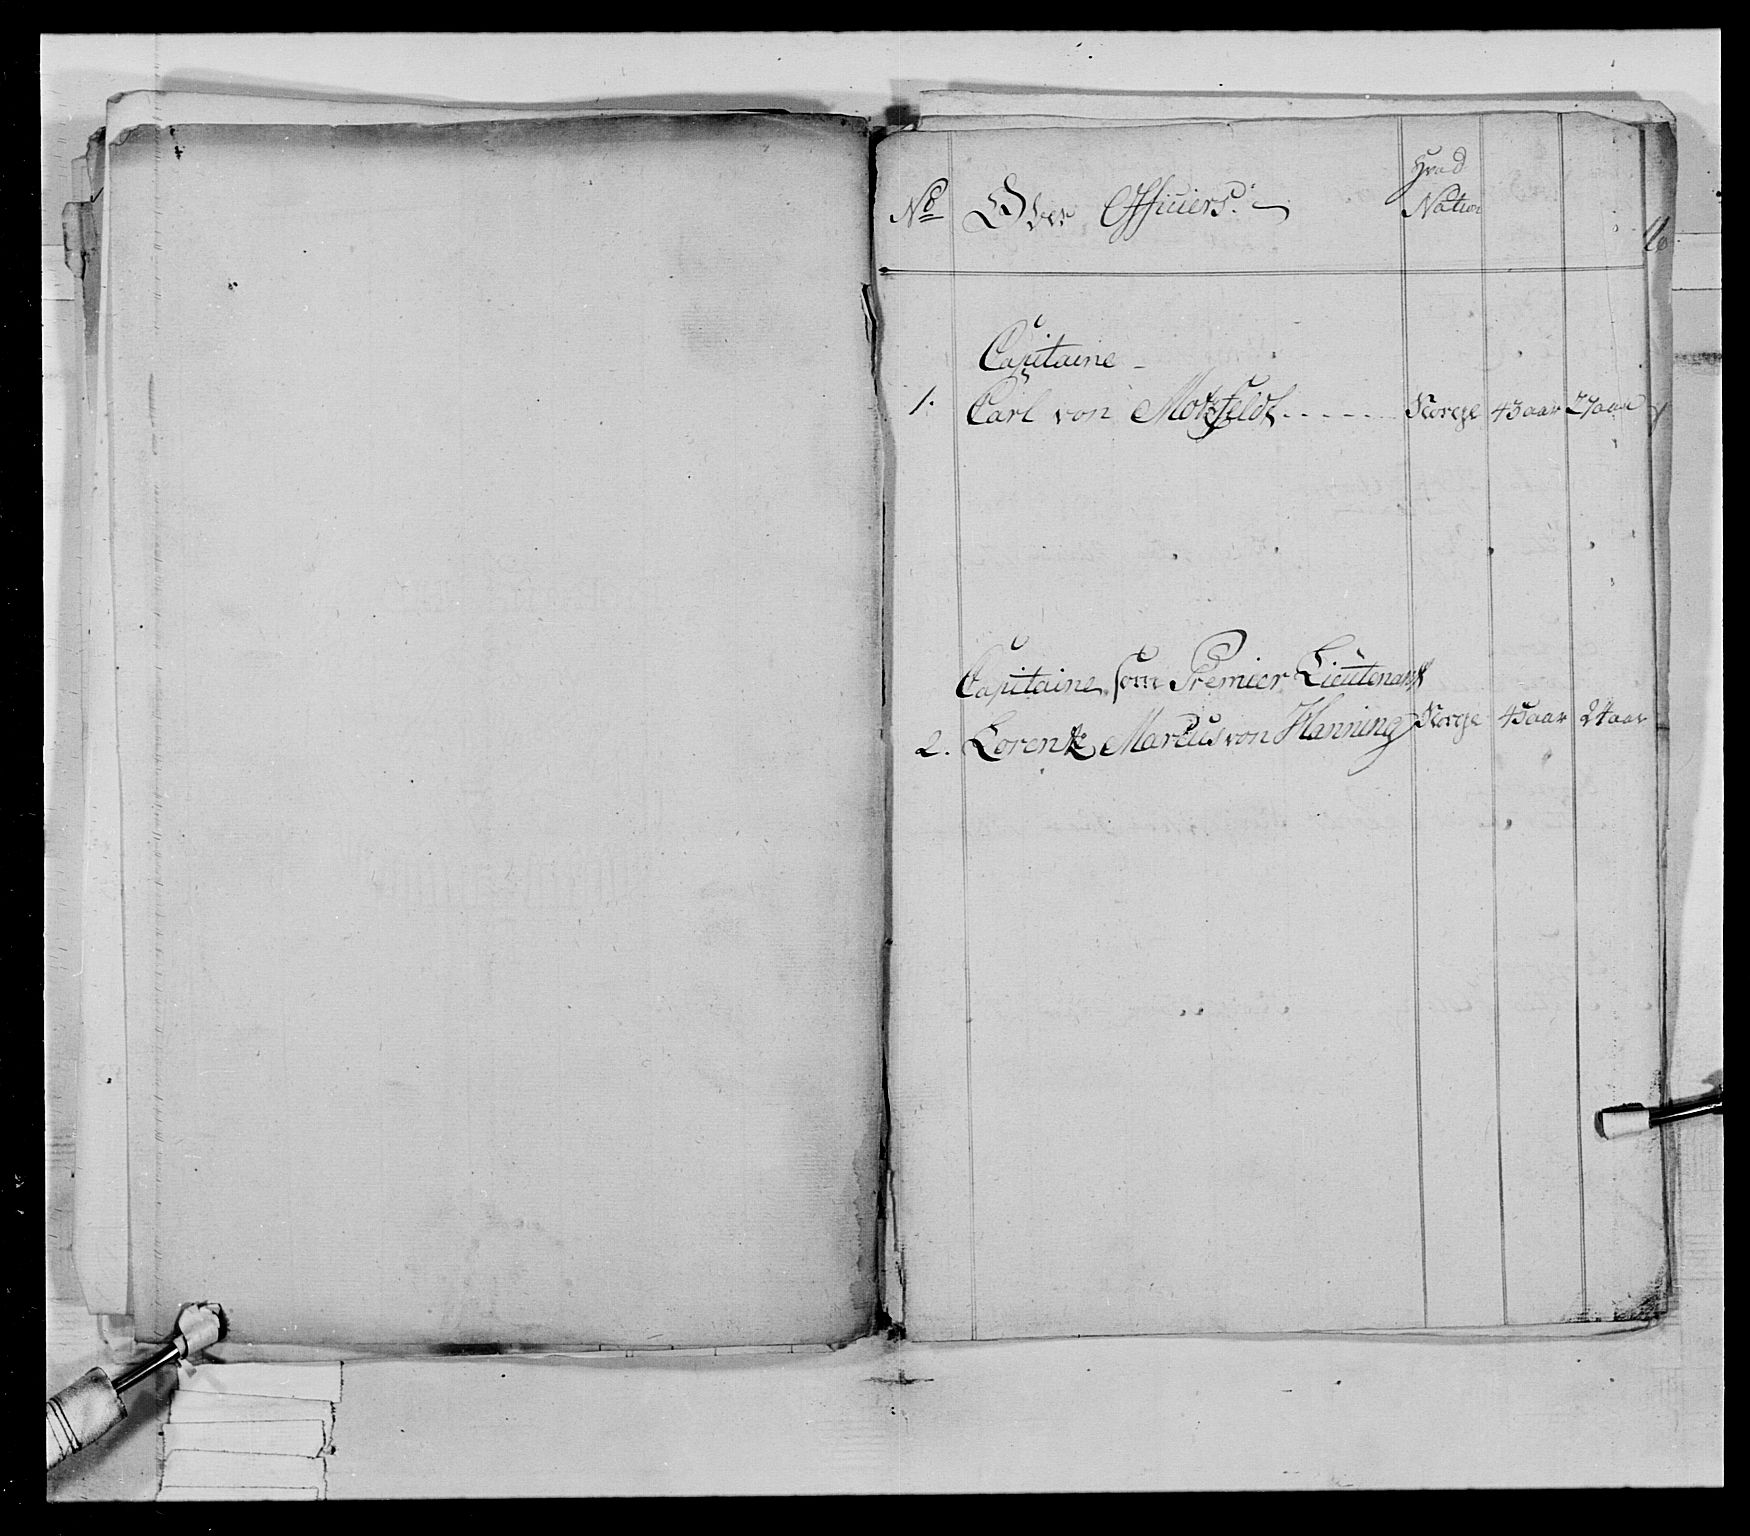 Hvad
No Over Officiers. Nation
Capitaine
1. Carl von Motzfeldt - - - - - Norge 43 aar 27 aar
Capitaine som Premier Lieutenant
2. Lorentz Marcus von Hanning Norge 45 aar 24 aar